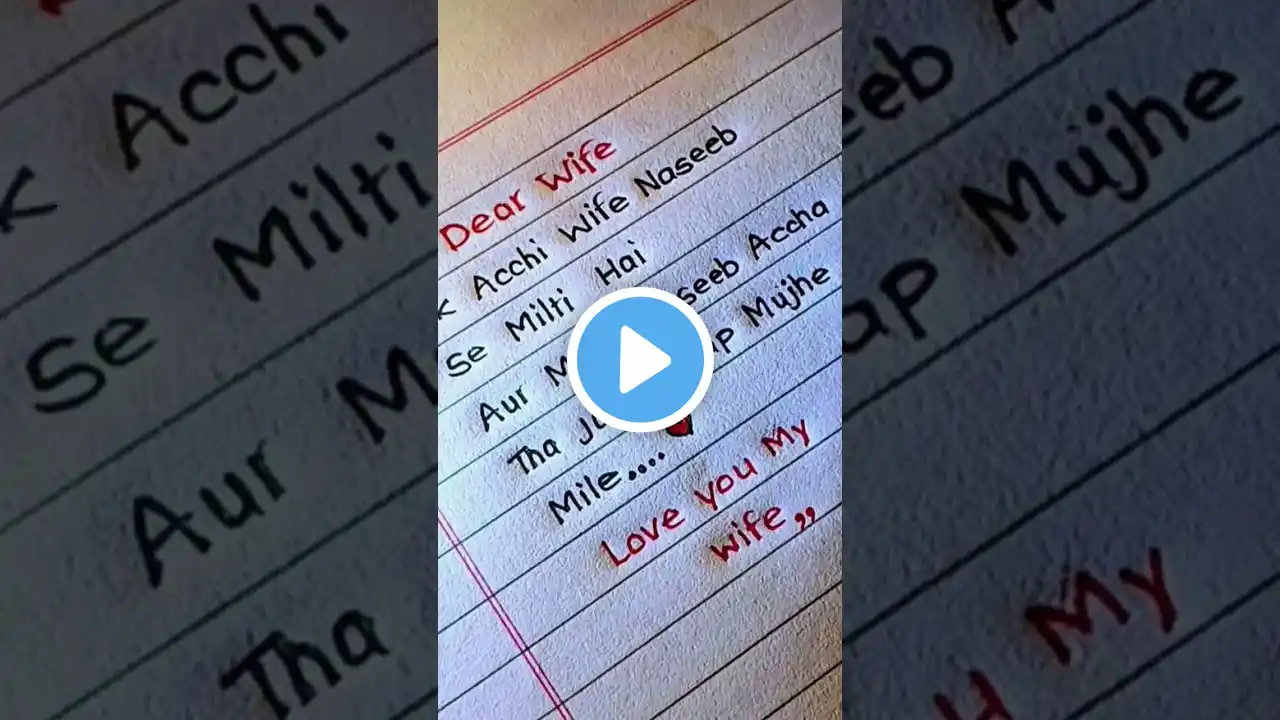 Dear Wife
k Acchi Wife Naseeb
Se Milti Hai
Aur Accha
Tha Mujhe
Mile....
Love you My
wife,,